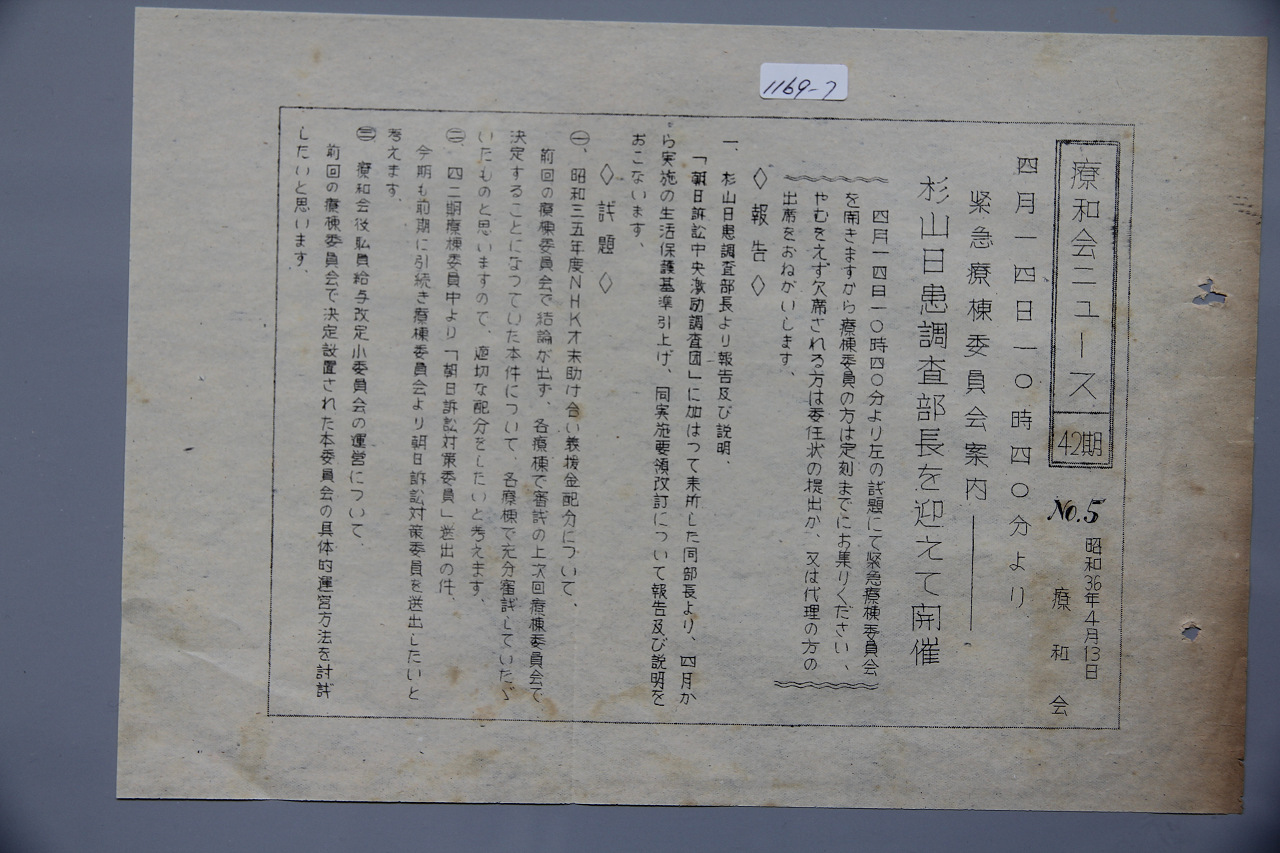 1169-7
療和会ニュース 42期
No.5 昭和36年4月13日
療和会
四月一四日一〇時四〇分より
緊急療棟委員会案内――
杉山日患調査部長を迎えて開催
四月一四日一〇時四〇分より左の討題にて緊急療棟委員会
を開きますから療棟委員の方は定刻までにお集りください、
やむをえず欠席される方は委任状の提出か、又は代理の方の
出席をおねがいします、
◇報告◇
一、杉山日患調査部長より報告及び説明、
「朝日訴訟中央激励調査団」に加はつて来所した同部長より、四月か
ら実施の生活保護基準引上げ、同実施要領改訂について報告及び説明を
おこないます、
◇討題◇
㊀、昭和三五年度NHK才末助け合い義援金配分について、
前回の療棟委員会で結論が出ず、各療棟で審討の上次回療棟委員会で
決定することになつていた本件について、各療棟で充分審討していたゞ
いたものと思いますので、適切な配分をしたいと考えます、
㊁、四二期療棟委員中より「朝日訴訟対策委員」送出の件、
今期も前期に引続き療棟委員会より朝日訴訟対策委員を送出したいと
考えます、
㊂、療和会役職員給与改定小委員会の運営について、
前回の療棟委員会で決定設置された本委員会の具体的運営方法を討議
したいと思います、